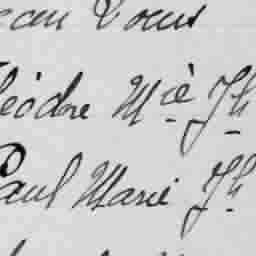 ean Louis
éodre Mie Jh
Paul Marie Jh